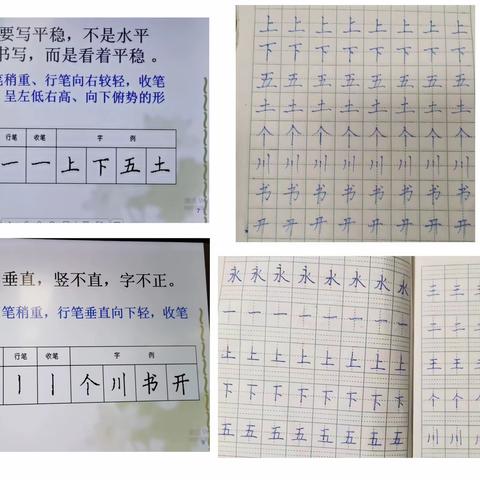 要写平稳，不是水平
书写，而是看着平稳。
笔稍重、行笔向右较轻，收笔
呈左低右高、向下俯势的形
行笔 收笔 字 例
一 一 上 下 五 土
垂直，竖不直，字不正。
笔稍重，行笔垂直向下轻，收笔
行笔 收笔 字 例
丨 丨 个 川 书 开
上 上 上 上 上 上 上 上
下 下 下 下 下 下 下 下
五 五 五 五 五 五 五 五
土 土 土 土 土 土 土 土
个 个 个 个 个 个 个 个
川 川 川 川 川 川 川 川
书 书 书 书 书 书 书 书
开 开 开 开 开 开 开 开
永 永 永 永 永 永 永 永
一 一 一 一 一 一 一 一
上 上 上 上 上 上 上 上
下 下 下 下 下 下 下 下
五 五 五 五 五 五 五 五
三 三 三
二 二 二
王 王 王
个 个 个
川 川 川